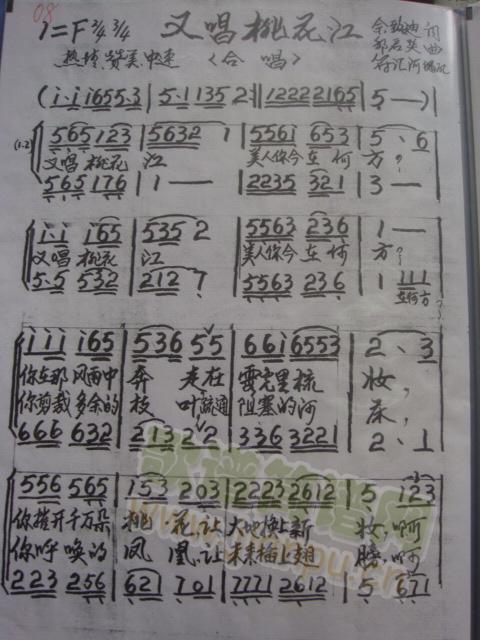 08
1=F 2/4 3/4 又唱桃花江 词
热情、赞美 中速 〈合唱〉 曲
(i·i 1655·3 | 5·1135 2 :‖ 12222165 | 5 — )|
(1.2) 565 123 | 5632 1 | 556i 653 | 5、6
又唱 桃花 江 美人你今在何 方?
565 176 | 1 — | 2235 321 | 3 —
i·i i65 | 535 2 | 5563 236 | 1 —
又唱 桃花 江 美人你今在何 方?
5·5 532 | 212 7 | 5563 236 | 1 111
在何方?
iii i65 | 536 55 | 66i 6553 | 2、3
你在那 风雨中 奔 走在 雪 里梳 妆,
你剪裁 多余的 枝 叶疏通 阻塞的河 床,
666 632 | 213 22 | 336 3221 | 2、1
556 565 | 153 203 | 2223 2612 | 5 123
你摧开千万朵 桃 花,让 大地换上新 妆,啊
你呼唤的 凤 凰,让 未来插上翅 膀,啊
223 256 | 621 701 | 7771 2612 | 5 671